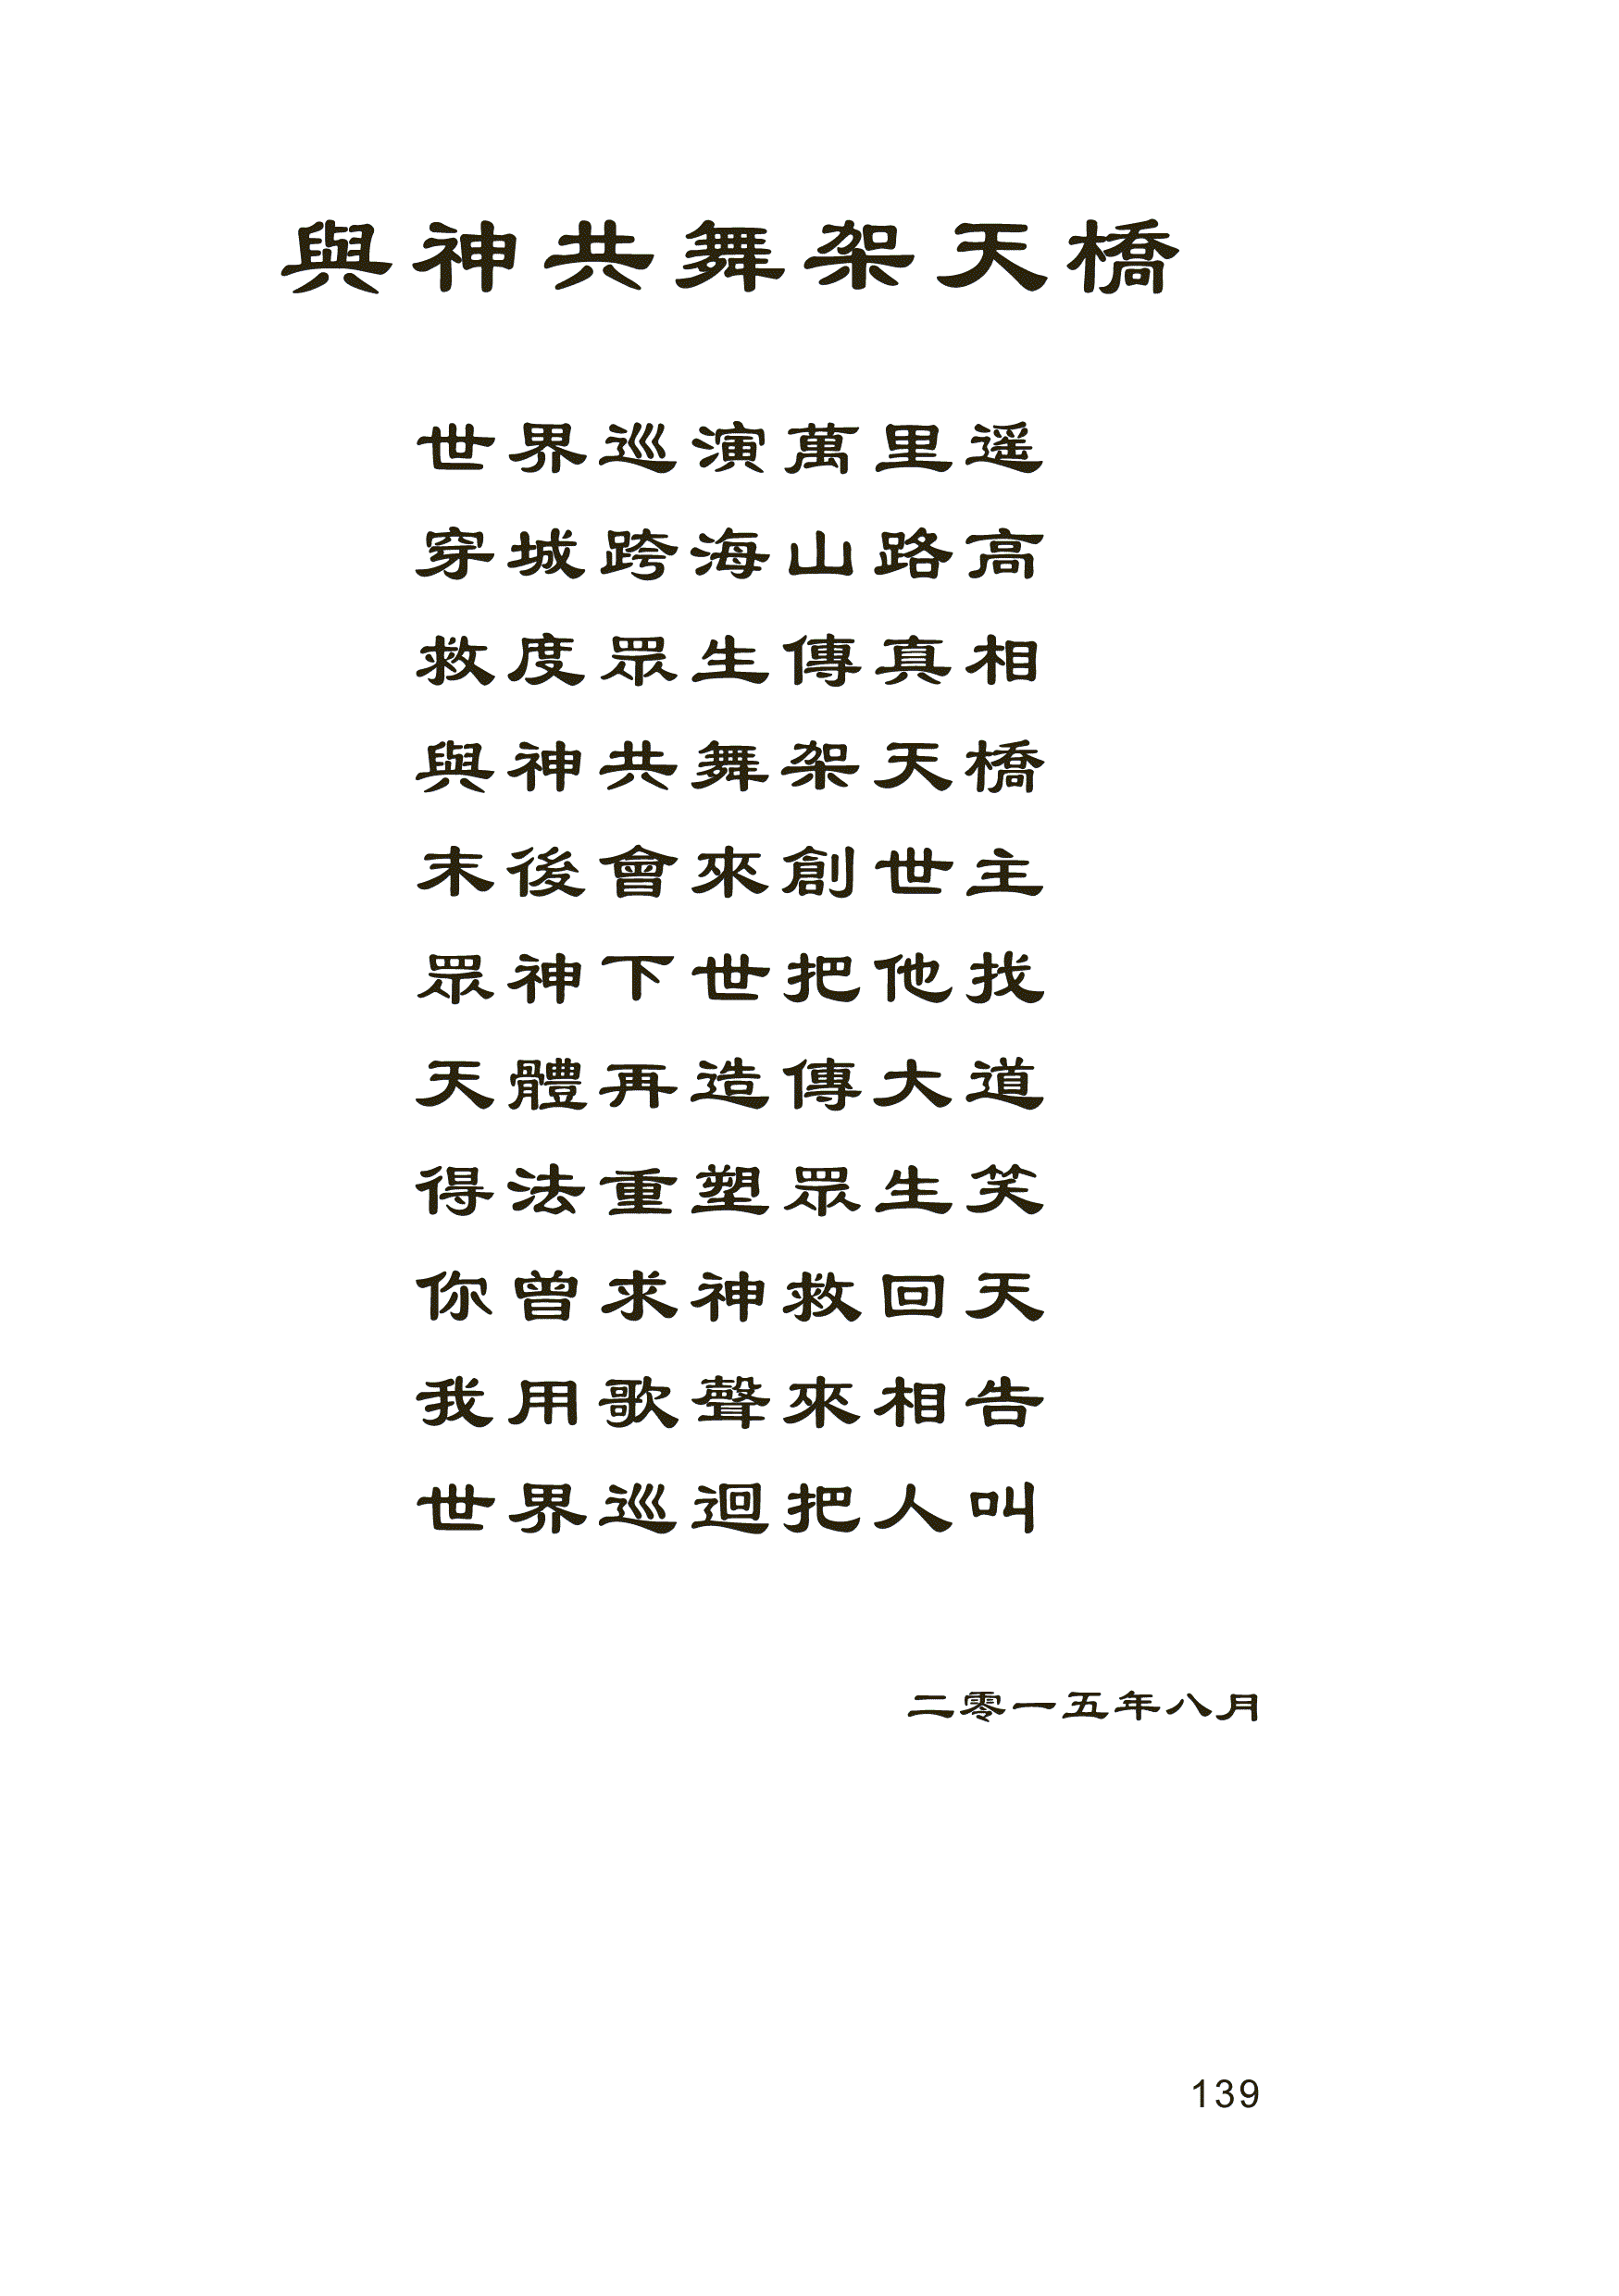 與神共舞架天橋
世界巡演萬里遥
穿城跨海山路高
救度眾生傳真相
與神共舞架天橋
末後會來創世主
眾神下世把他找
天體再造傳大道
得法重塑眾生笑
你曾求神救回天
我用歌聲來相告
世界巡迴把人叫
二零一五年八月
139